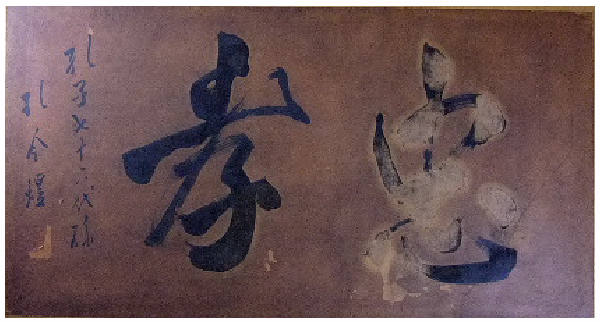 忠孝
孔子七十六代孫
孔令